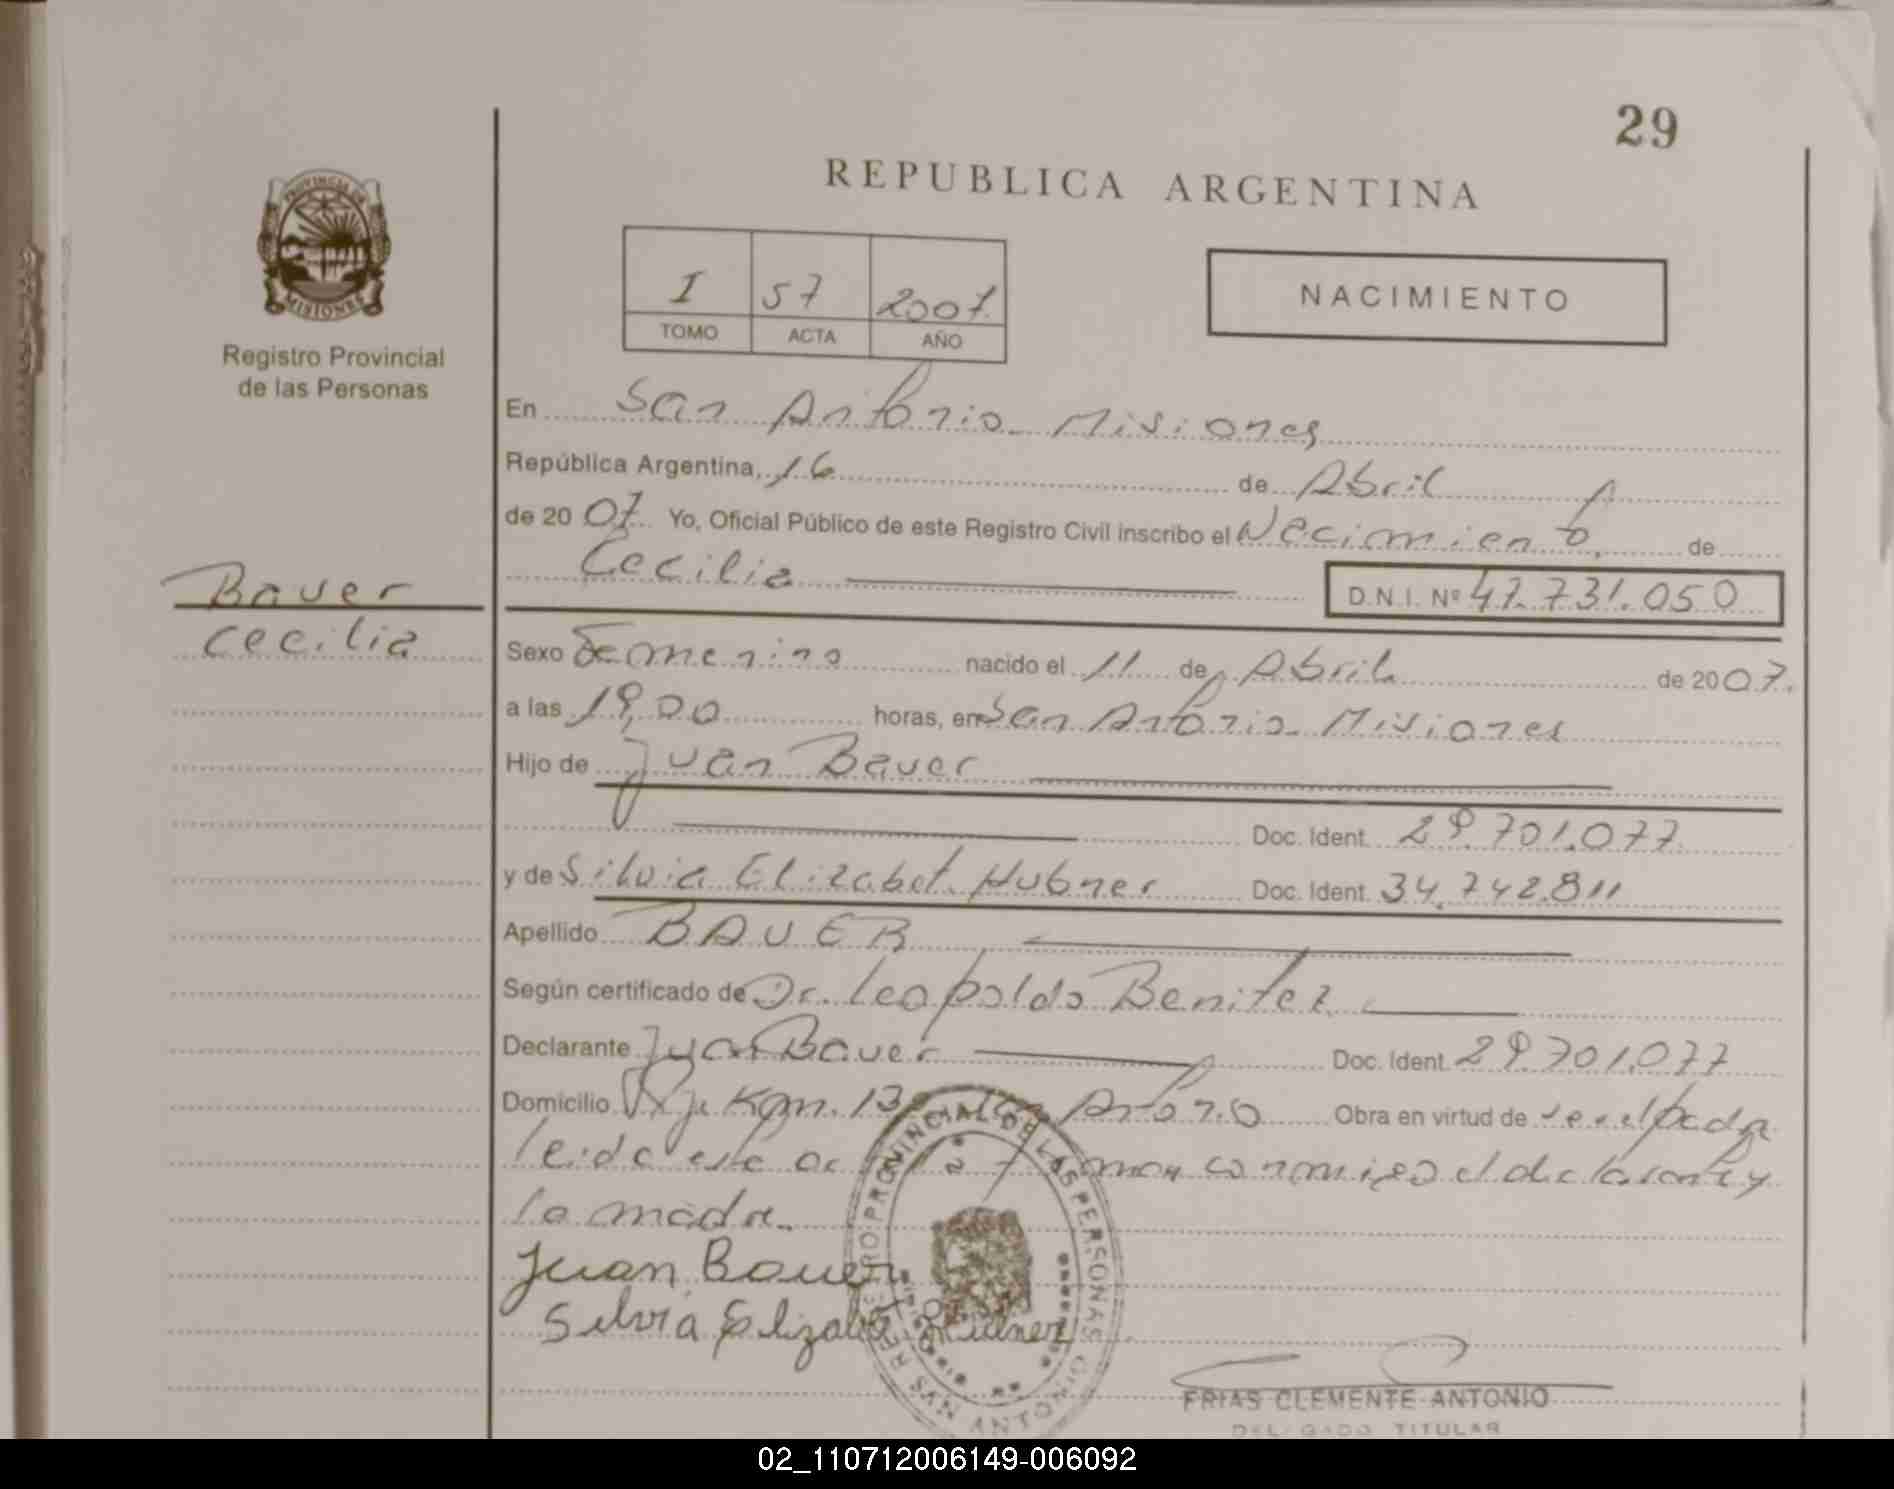 29
REPUBLICA ARGENTINA
PROVINCIA DE
MISIONES
Registro Provincial
de las Personas
I 57 2007.
TOMO ACTA AÑO
NACIMIENTO
En San Antonio Misiones
República Argentina, 16 de Abril
de 2007 Yo, Oficial Público de este Registro Civil inscribo el Necimiento de
Cecilia D.N.I. Nº 47.731.050
Bauer
Cecilia
Sexo Femenino nacido el 11 de Abril de 2007.
a las 19,00 horas, en San Antonio Misiones
Hijo de Juan Bauer
Doc. Ident. 29.701.077
y de Silvia Elizabet Hubner Doc. Ident. 34.742.811
Apellido BAUER
Según certificado de Dr. Leopoldo Benitez
Declarante Juan Bauer Doc. Ident. 29.701.077
Domicilio Km. 13 San Antonio Obra en virtud de
leida esta conmigo el declarante y
la madre.
Juan Bauer
Silvia Elizabet Hubner
PROVINCIAL DE LAS PERSONAS
SAN ANTONIO
FRIAS CLEMENTE ANTONIO
DELEGADO TITULAR
02_110712006149-006092